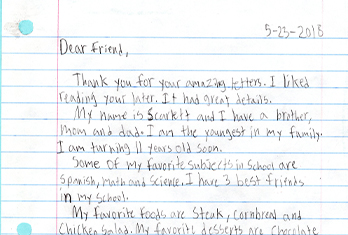 5-23-2018
Dear friend,
Thank you for your amazing letters. I liked
reading your later. It had great details.
My name is Scarlett and I have a brother,
mom and dad. I am the youngest in my family.
I am turning 11 years old soon.
Some of my favorite subjects in school are
Spanish, Math and Science. I have 3 best friends
in my school.
My favorite foods are Steak, Cornbread and
Chicken Salad. My favorite desserts are Chocolate